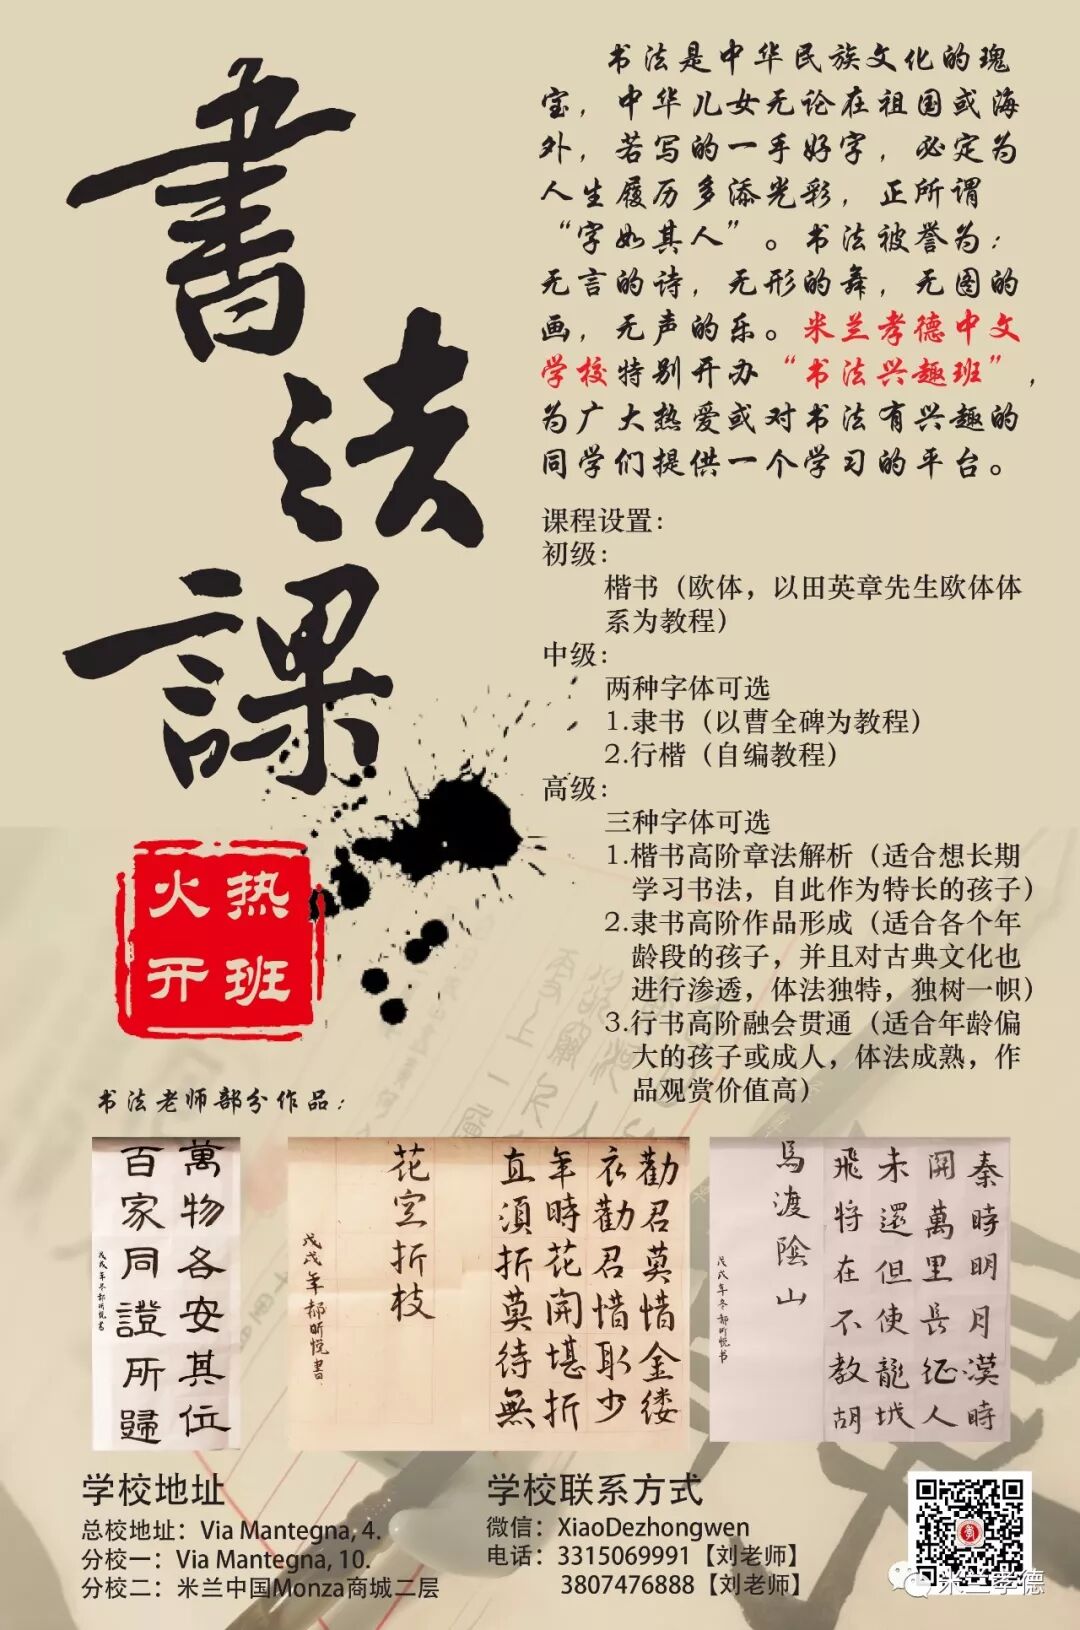 書
法
課
火热
开班
书法是中华民族文化的瑰
宝，中华儿女无论在祖国或海
外，若写的一手好字，必定为
人生履历多添光彩，正所谓
“字如其人”。书法被誉为：
无言的诗，无形的舞，无图的
画，无声的乐。米兰孝德中文
学校特别开办“书法兴趣班”，
为广大热爱或对书法有兴趣的
同学们提供一个学习的平台。
课程设置：
初级：
楷书（欧体，以田英章先生欧体体
系为教程）
中级：
两种字体可选
1.隶书（以曹全碑为教程）
2.行楷（自编教程）
高级：
三种字体可选
1.楷书高阶章法解析（适合想长期
学习书法，自此作为特长的孩子）
2.隶书高阶作品形成（适合各个年
龄段的孩子，并且对古典文化也
进行渗透，体法独特，独树一帜）
3.行书高阶融会贯通（适合年龄偏
大的孩子或成人，体法成熟，作
品观赏价值高）
书法老师部分作品：
萬物各安其位
百家同證所歸
戊戌年冬郝昕悦书
勸君莫惜金缕
衣勸君惜取少
年時花開堪折
直須折莫待無
花空折枝
戊戌年郝昕悦書
秦時明月漢時
関萬里長征人
未還但使龍城
飛将在不教胡
馬渡陰山
戊戌年冬郝昕悦书
学校地址
总校地址：Via Mantegna, 4.
分校一：Via Mantegna, 10.
分校二：米兰中国Monza商城二层
学校联系方式
微信：XiaoDezhongwen
电话：3315069991【刘老师】
3807476888【刘老师】
米兰孝德